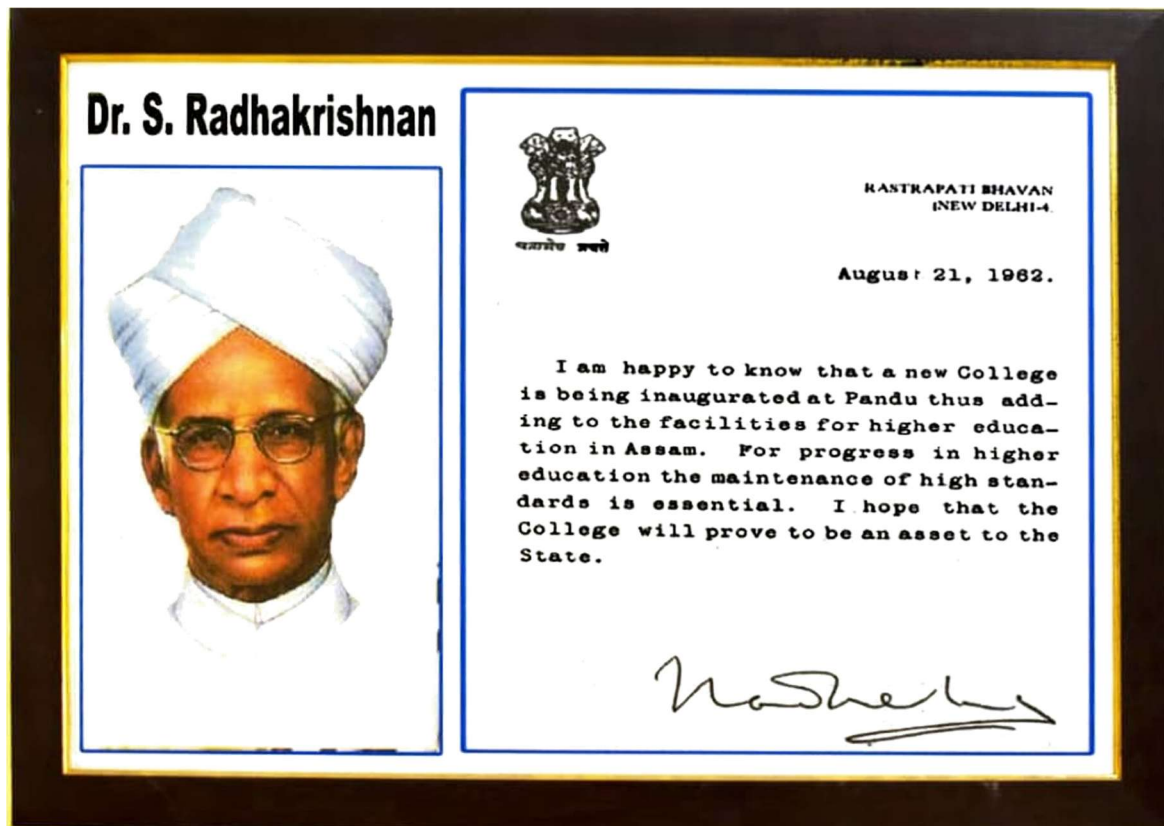 Dr. S. Radhakrishnan
सत्यमेव जयते
RASTRAPATI BHAVAN
NEW DELHI-4.
August 21, 1962.
I am happy to know that a new College
is being inaugurated at Pandu thus add-
ing to the facilities for higher educa-
tion in Assam. For progress in higher
education the maintenance of high stan-
dards is essential. I hope that the
College will prove to be an asset to the
State.